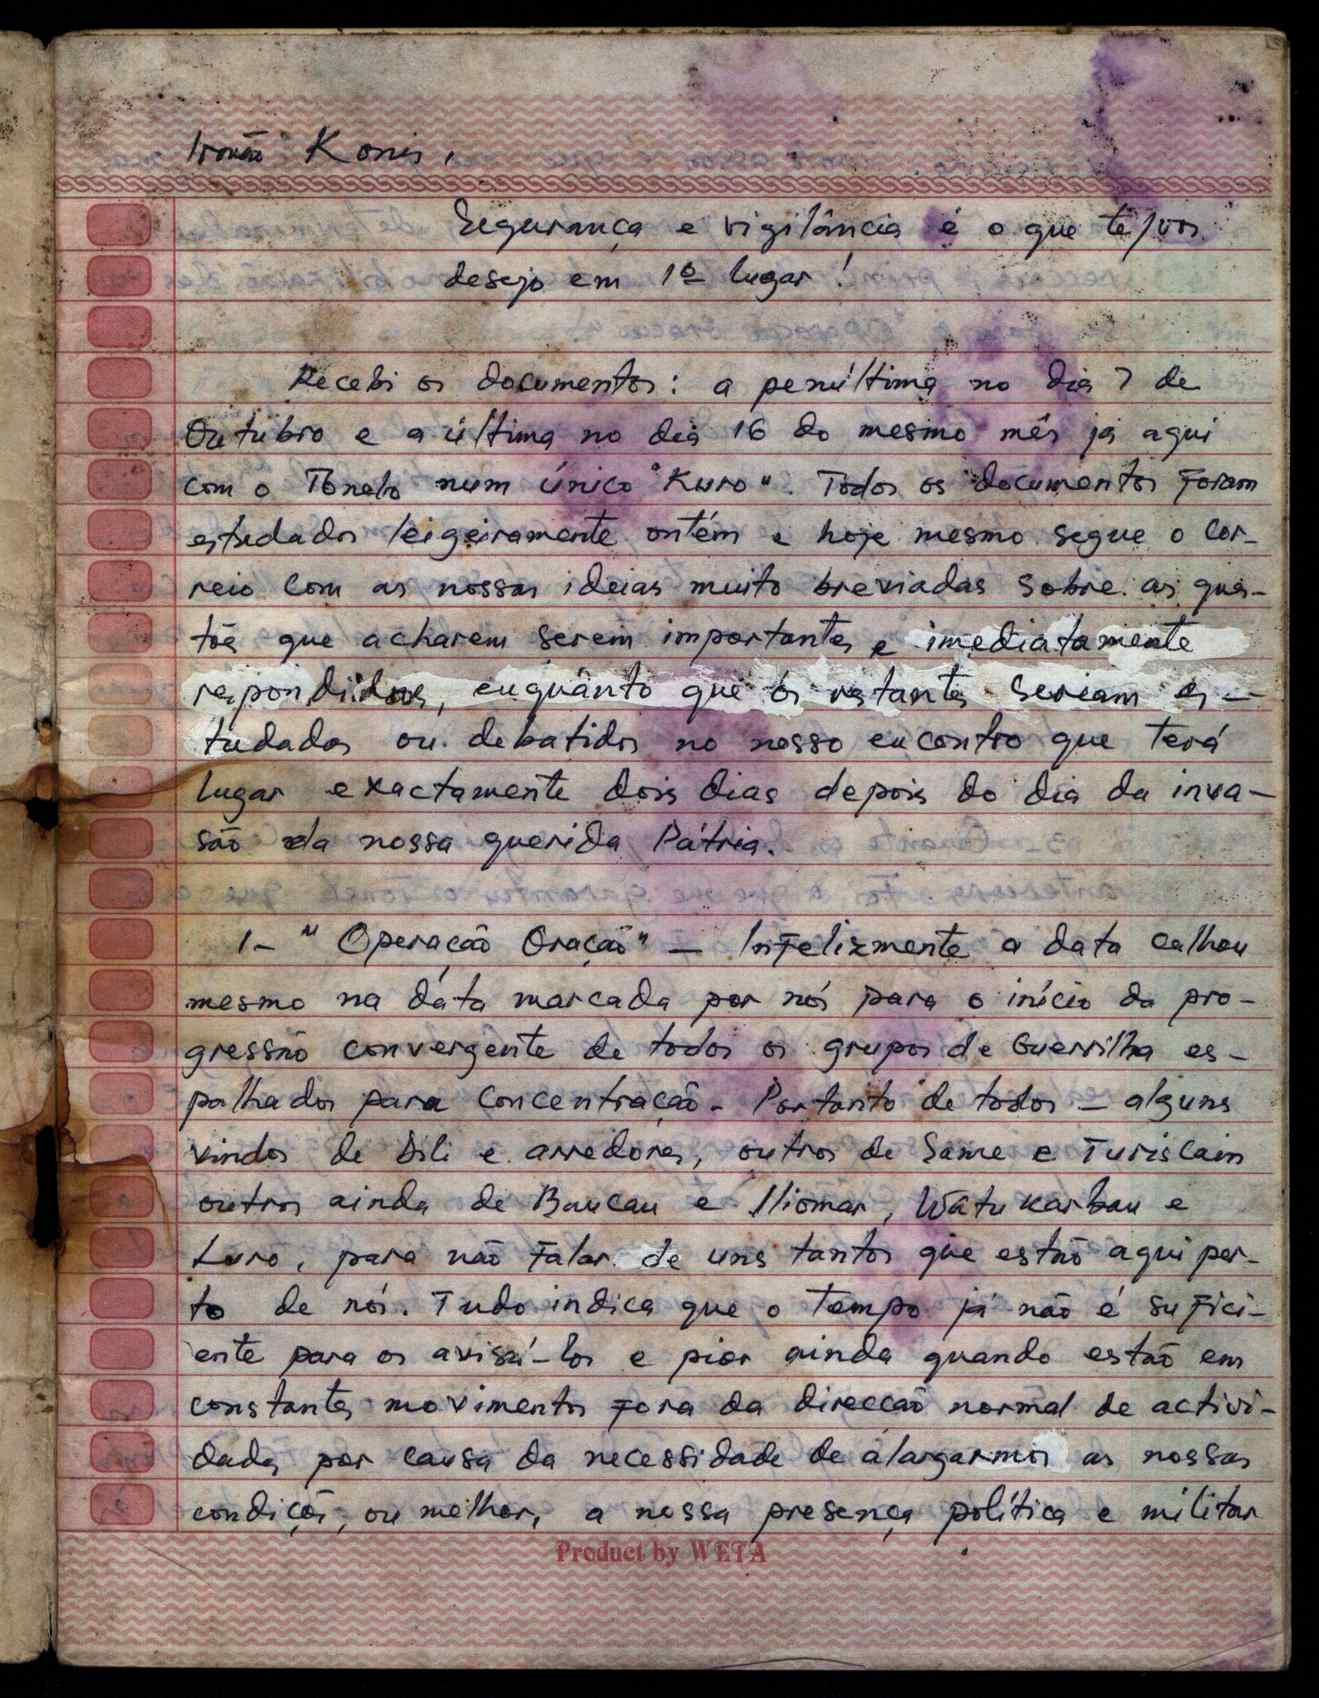 Irmão Konis,
Segurança e vigilância é o que te/vos
desejo em 1º lugar!
Recebi os documentos: a penúltima no dia 7 de
Outubro e a última no dia 16 do mesmo mês já aqui
com o Tonelo num único "Kuro". Todos os documentos foram
estudados leigeiramente ontém e hoje mesmo segue o cor-
reio com as nossas ideias muito breviadas sobre as ques-
tões que acharem serem importantes e imediatamente
respondidos, enquânto que os restantes seriam es-
tudados ou debatidos no nosso encontro que terá
lugar exactamente dois dias depois do dia da inva-
são da nossa querida Pátria.
1- "Operação Oração" - Infelizmente a data calhou
mesmo na data marcada por nós para o início da pro-
gressão convergente de todos os grupos de Guerrilha es-
palhados para Concentração. Portanto de todos - alguns
vindos de Dili e arredores, outros de Same e Turiscain
outros ainda de Baucau e Iliomar, Watukarbau e
Luro, para não falar de uns tantos que estão aqui per-
to de nós. Tudo indica que o tempo já não é sufici-
ente para os avisá-los e pior ainda quando estão em
constantes movimentos fora da direcção normal de activi-
dades por causa da necessidade de alargarmos as nossas
condições, ou melhor, a nossa presença política e militar
Product by WETA